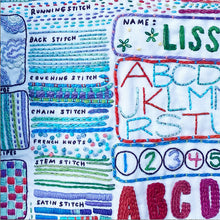 RUNNING STITCH
BACK STITCH
COUCHING STITCH
CHAIN STITCH
FRENCH KNOTS
STEM STITCH
SATIN STITCH
NAME:
LISS
ABCD
JKLM
RST
12345
ABCD